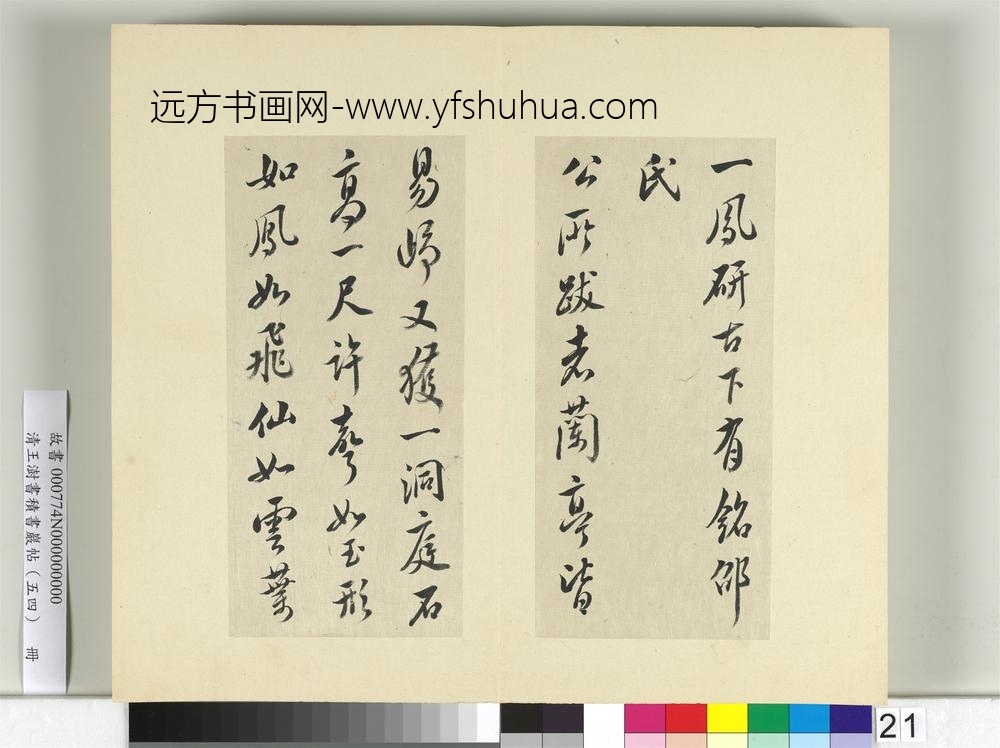 远方书画网-www.yfshuhua.com
一鳳研古下有銘邵
氏
公所跋老蘭亭皆
易歸又獲一洞庭石
高一尺許聲如玉形
如鳳如飛仙如雲葉
故書 000774N000000000
清王澍書積書巖帖（五四） 冊
21